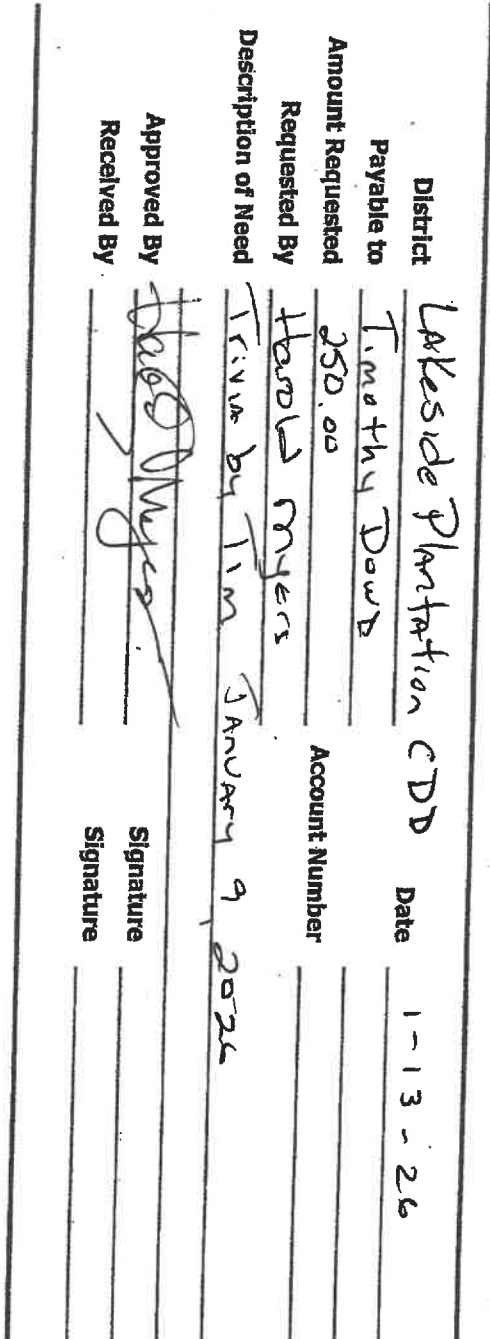 District Lakeside Plantation CDD Date 1-13-26
Payable to Timothy Dowd
Amount Requested 250.00 Account Number
Requested By Harold Myers
Description of Need Trivia by Tim January 9, 2026
Approved By Signature
Received By Signature